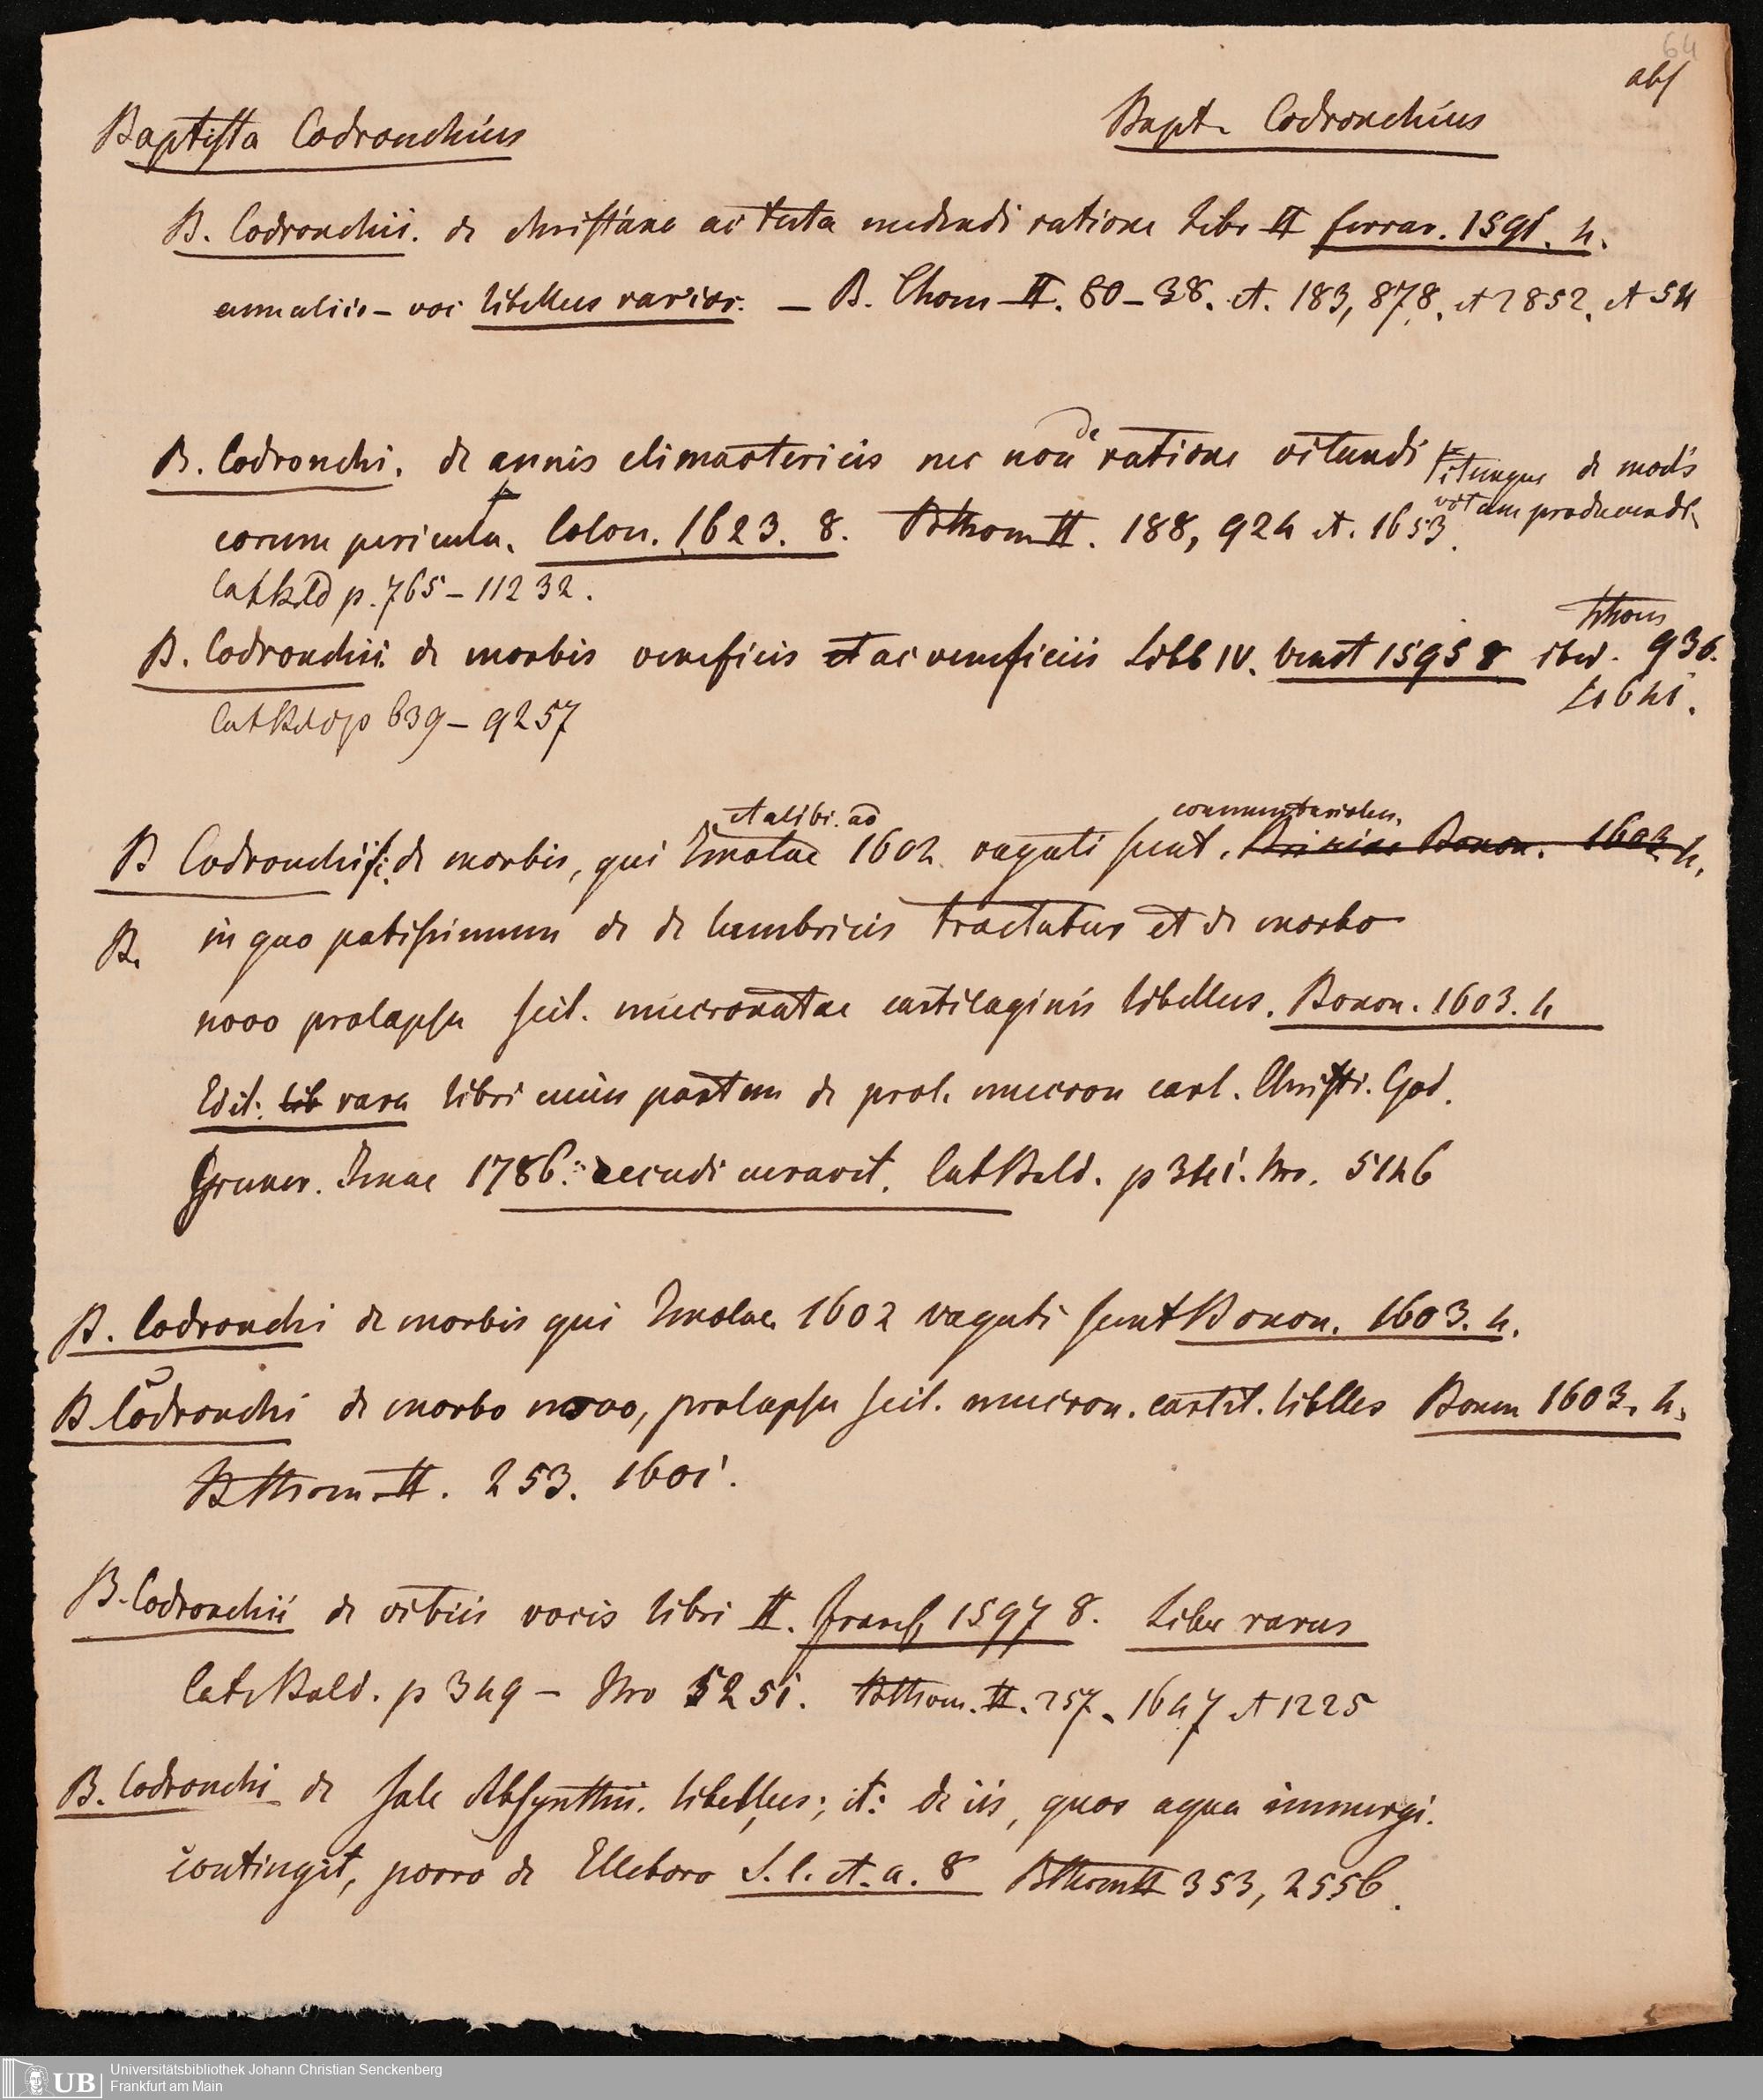 64
abs
Baptista Codronchius
Bapt. Codronchius
B. Codronchii. de christiana ac tuta medendi ratione Libr II ferrar. 1591. 4.
libellus rarior. — B. Thom II. 80–38. et. 183, 878. et 2852. et 54
B. Codronchi. de annis climactericis nec non de ratione vitandi
itemque de modis
vitam producendi
eorum pericula. Colon. 1623. 8. BthomII. 188, 924 et. 1653.
CatBald p. 765 – 11232.
B. Codronchii de morbis veneficis et ac veneficiis Libb IV. Venet 1595 8 ibid. 936.
bthom
CatBald p 639 – 9257
et alibi ad
commentariolum.
B Codronchii: de morbis, qui Imolae 1602 vagati sunt. Bonon. 1603. 4.
B. in quo potissimum de de lumbricis tractatur et de morbo
novo prolapsu scil. mucronatae cartilaginis libellus. Bonon. 1603. 4
Edit: lib rara libri enim partem de prol. mucron cart. Christi. God.
Gruner. Jenae 1786: recudi curavit. CatBald. p 341. Nro. 5146
B. Codronchi de morbis qui Imolae 1602 vagati sunt Bonon. 1603. 4.
B Codronchi de morbo novo, prolapsu scil. mucron. cartil. liblles Bonon 1603. 4.
BthomII. 253. 1601.
B. Codronchii de vitiis vocis libri II. francf. 1597 8. Liber rarus
Cat. Bald. p 349 – Nro 5251. Bthom. II. 257. 1647 et 1225
B. Codronchi de sale Absynthii. libellus; it: de iis, quos aqua immergi.
contingit, porro de Elleboro S. l. et. a. 8 BthomII 353, 2556.
UB
Universitätsbibliothek Johann Christian Senckenberg
Frankfurt am Main